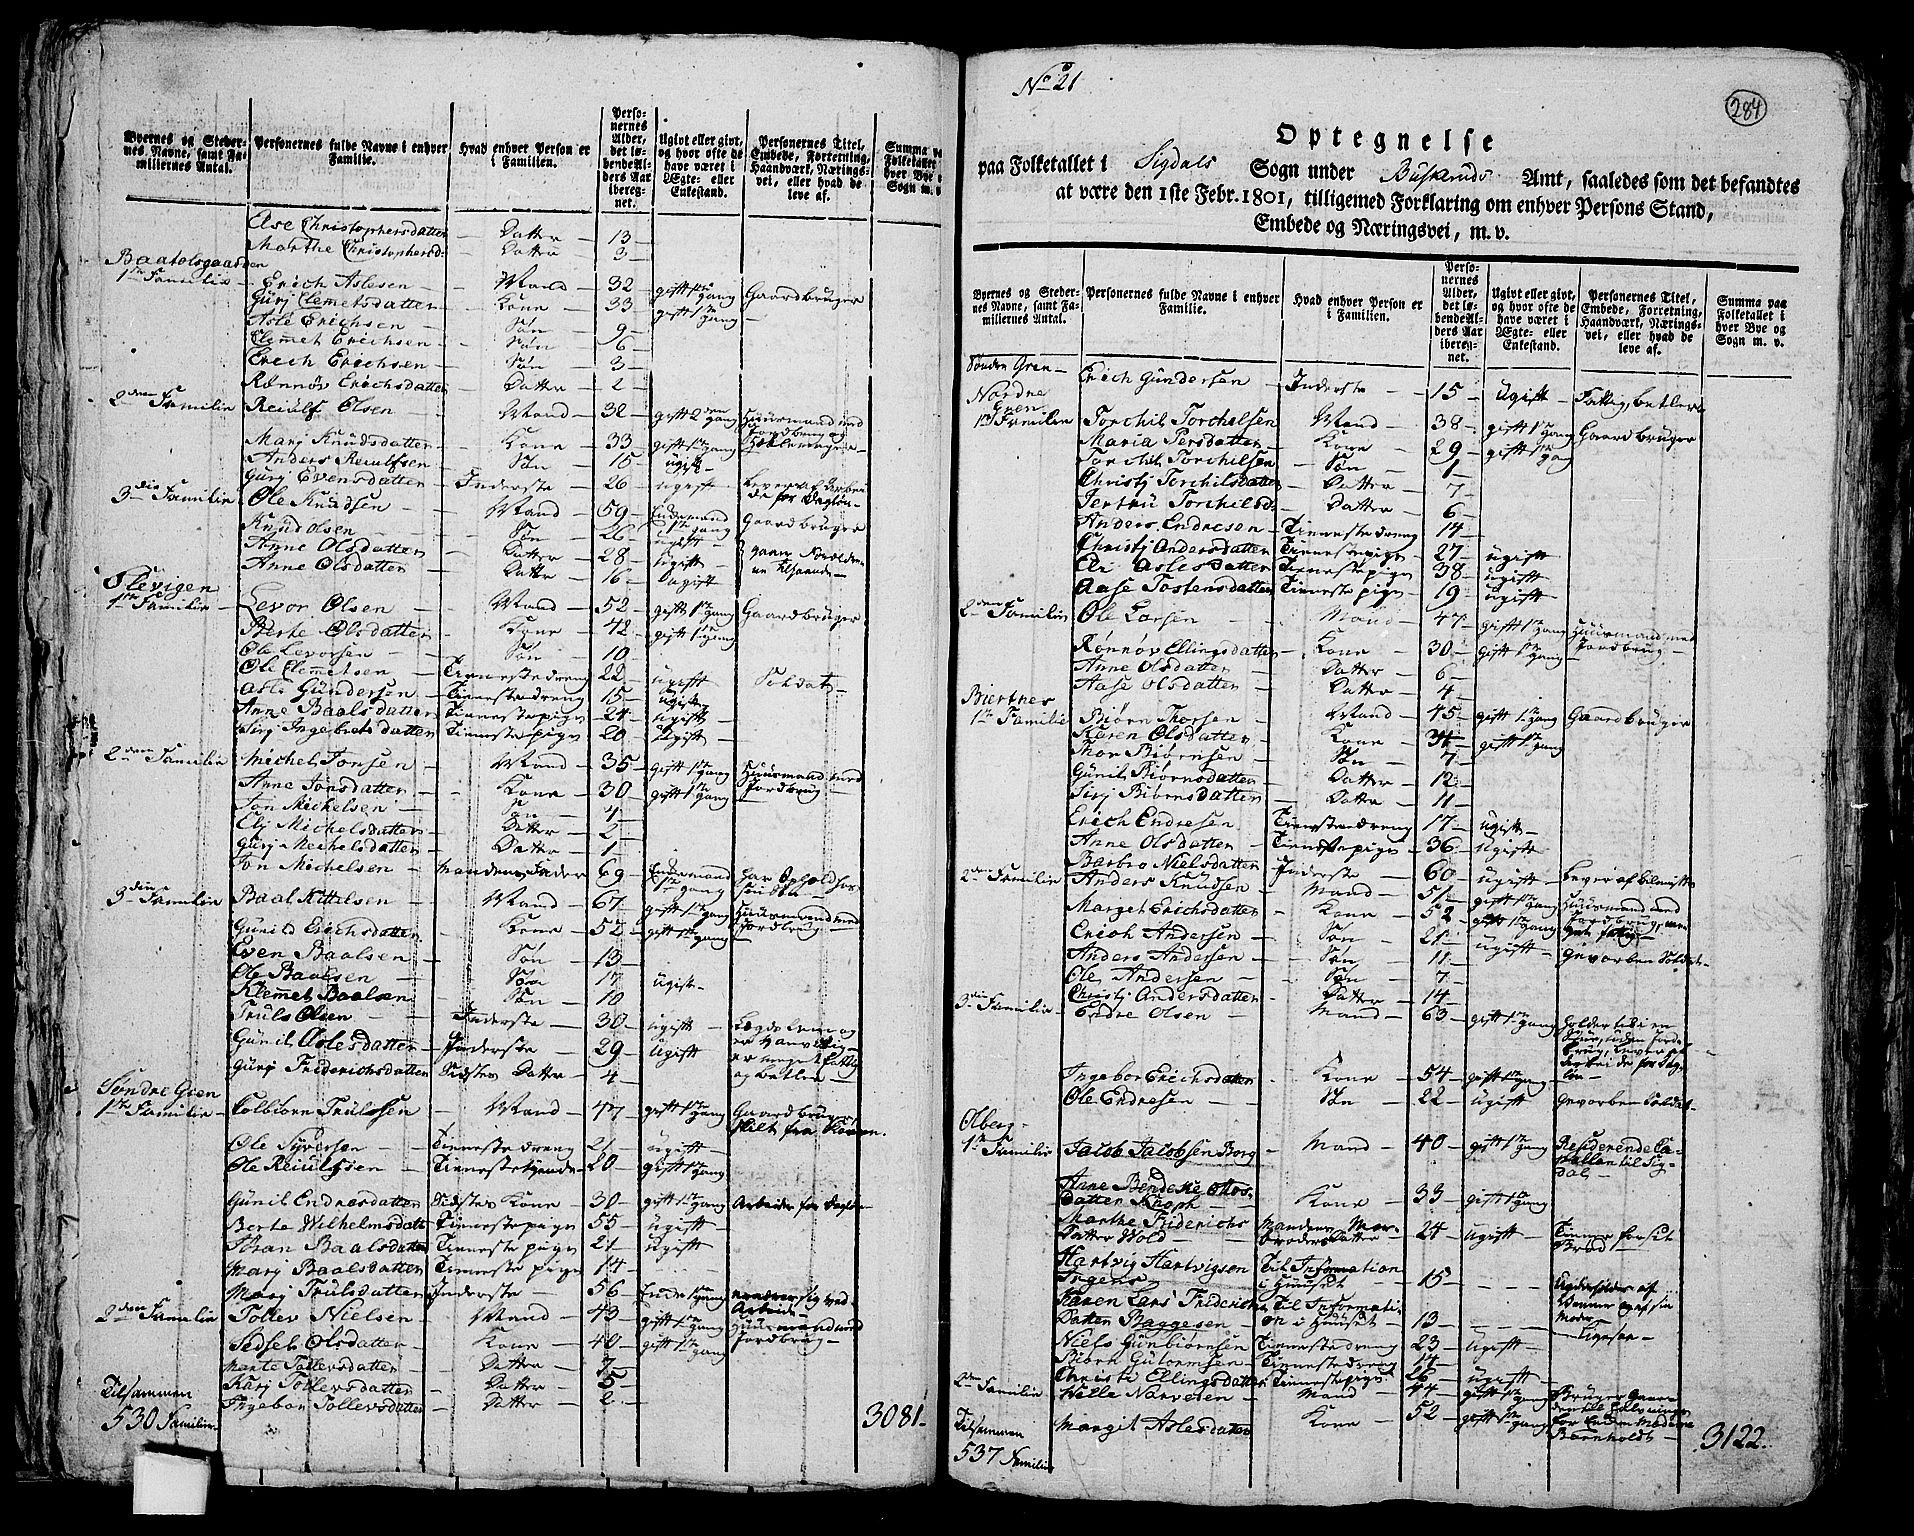 Byernes og Steder-
nes Navne, samt Fa-
miliernes Antal.
Personernes fulde Navne i enhver
Familie.
Hvad enhver Person er
i Familien.
Perso-
nernes
Alder,
det lø-
bende Al-
ders Aar
ibereg-
net.
Ugivt eller givt,
og hvor ofte de
have været i
Egte- eller
Enkestand.
Personernes Titel,
Embede, Forretning,
Haandværk, Nærings-
vei, eller hvad de
leve af.
Else Christophersdatter - Datter - 13 -
Marthe Christophersd: - Datter - 3 -
Baatolsgaarden
1ste Familie - Erich Aslesen - Mand - 32 - gift 1ste gang Gaardbruger
Gurj Clemetsdatter - Kone - 33 gift 1ste gang
Asle Erichsen - Søn - 9 -
Clemet Erichsen - Søn - 6 -
Erich Erichsen - Søn - 3 -
Rønnøv Erichsdatter - Datter - 2 -
2den Familie Reiulf Olsen - Mand - 32 - gift 2den gang Huusmand med Jordbrug og
Marj Knudsdatter - Kone - 33 gift 1ste gang
Anders Reiulfsen - Søn - 15 - ugift
Gurj Evensdatter - Inderste - 26 - ugift - Lever af Arbei-
de for Dagløn -
3die Familie Ole Knudsen - Mand - 59 - Enkemand 1ste gang Gaardbruger
Knud Olsen - Søn - 26 - ugift
Anne Olsdatter - Datter - 28 - ugift
Anne Olsdatter - Datter - 16 - ugift
Slevigen
1ste Familie - Levor Olsen - Mand - 52 - gift 1ste gang Gaardbruger
Berte Olsdatter - Kone - 42 - gift 1ste gang
Ole Levorsen - Søn - 10 -
Ole Clemetsen - Tienestedreng 22 - ugift Soldat -
Asle Gundersen - Tienestedreng 15 - ugift
Anne Baalsdatter Tienestepige - 24 - ugift -
Sirj Ingebretsdatter Tienestepige - 20 - ugift -
2den Familie Michel Jonsen - Mand - 35 - gift 1ste gang Huusmand med Jordbrug -
Anne Jonsdatter - Kone - 30 - gift 1ste gang
Jon Michelsen - Søn - 4 -
Elj Michelsdatter - Datter - 2 -
Gurj Michelsdatter - Datter - 1 -
Jon Michelsen - Mandens Fader 69 - Enkemand 1ste gang har Ophold hos
3die Familie - Baal Kittilsen - Mand - 67 - gift 1ste gang Huusmand med Jordbrug -
Gunild Erichsdatter - Kone - 52 - gift 1ste gang
Even Baalsen - Søn - 13 -
Ole Baalsen - Søn - 17 ugift -
Klemmet Baalsen - Søn - 10
Truls Olsen - Inderste - 30 - ugift -
Gunil Aslesdatter - Inderste - 29 - ugift
Gurj Friderichsdatter Sidstes Datter - 4 -
Søndre Gren
1ste Familie - Colbiorn Trulssen - Mand - 47 - gift 1ste gang Gaardbruger,
Ole Syversen - Tienestedreng 21 - ugift -
Ole Reiulfsen - Tienestekarl - 20 - gift 1ste gang
Gunil Endresdatter Sidstes Kone - 30 - gift 1ste gang Arbeider for Dagløn -
Berte Wilhelmsdatt: Tienestepige - 55 - ugift
Jøran Baalsdatter Tienestepige - 21 - ugift
Marj Baalsdatter Tienestepige - 14 -
Marj Trulsdatter Inderste - 56 - Enke 1ste gang nærer sig ved Arbeide -
2den Familie - Tollev Nielsen - Mand - 43 - gift 1ste gang Huusmand med Jordbrug -
Sidsel Olsdatter - Kone - 40 - gift 1ste gang
Marte Tollevsdatter - Datter - 7 -
Karj Tollevsdatter - Datter - 5 -
Ingebor Tollevsdatter - Datter - 2 -
Tilsammen
530 Familier 3081 -
No 21
284
Optegnelse
paa Folketallet i Sigdals Sogn under Buskeruds Amt, saaledes som det befandtes
at være den 1ste Febr. 1801, tilligemed Forklaring om enhver Persons Stand,
Embede og Næringsvei, m. v.
Byernes og Steder-
nes Navne, samt Fa-
miliernes Antal.
Personernes fulde Navne i enhver
Familie.
Hvad enhver Person er
i Familien.
Perso-
nernes
Alder,
det lø-
bende Al-
ders Aar
ibereg-
net.
Ugivt eller givt,
og hvor ofte de
have været i
Egte- eller
Enkestand.
Personernes Titel,
Embede, Forretning,
Haandværk, Nærings-
vei, eller hvad de
leve af.
Summa paa
Folketallet i
hver Bye og
Sogn m. v.
Sønden Gren - Erich Gundersen - Inderste - 15 - ugift - Fattig, betler
Nordre Gren -
1ste Familie Torchil Torchelsen - Mand - 38 - gift 1ste gang Gaardbruger
Maria Persdatter - Kone - 29 - gift 1ste gang
Torchil Torchilsen - Søn - 1 -
Christj Torchilsdatter - Datter - 7 -
Jertru Torchilsd: - Datter - 6 -
Anders Endresen - Tienestedreng 14 -
Christj Andersdatter Tienestepige - 27 - ugift
Eli Aslesdatter Tienestepige 38 - ugift
Aase Tostensdatter Tienestepige - 19 - ugift -
2den Familie Ole Larsen - Mand - 47 - gift 1ste gang Huusmand med Jordbrug -
Rønnøv Ellingsdatter - Kone - 30 - gift 1ste gang
Anne Olsdatter - Datter - 6 -
Aase Olsdatter - Datter - 4 -
Biertnes
1ste Familie Biørn Thorsen - Mand - 45 - gift 1ste gang Gaardbruger
Karen Olsdatter - Kone - 34 - gift 1ste gang
Thor Biørnsen - Søn - 7 -
Gunil Biørnsdatter - Datter - 12 -
Sirj Biørnsdatter - Datter - 11 -
Erich Endresen Tienestedreng - 17 - ugift -
Anne Olsdatter - Tienestepige - 36 - ugift
Barbro Nielsdatter - Inderste - 60 - ugift -
2den Familie - Anders Knudsen - Mand - 51 - gift 1ste gang Huusmand med
Marget Erichsdatter - Kone - 52 gift 1ste gang
Erich Andersen - Søn - 21 - ugift - Gevorben Soldat -
Anders Andersen - Søn - 11 -
Ole Andersen - Søn - 7 -
Christj Andersdatter - Datter - 14 -
3die Familie - Endre Olsen - Mand - 63 - gift 1ste gang
Ingebor Erichsdatter - Kone - 54 - gift 1ste gang
Ole Endresen - Søn - 22 - ugift - Gevorben Soldat -
Olberg -
1ste Familie Jacob Jacobsen Borg - Mand - 40 - gift 1ste gang Residerende Ca-
pellan til Sig-
dal -
Anne Bendecke Ottos-
datter Knoph - Kone - 33 - gift 1ste gang
Marthe Friderichs
datter Wold - Mandens Mor-
broders Datter - 24 - ugift - Tiener for sit
Brød -
Hartvig Hartvigsen
Ingens - Til Information
i Huuset - 15 -
Karen Lars Friderich
datter Baggesen - Til Informati-
on i Huuset - 13 -
Niels Gunbiørnsen - Tienestedreng - 23 - ugift -
Biørn Gutormsen - Tienestedreng - 14 -
Christi Ellingsdatter Tienestepige - 26 - ugift -
2den Familie - Helle Narvesen - Mand - 44 - gift 1ste gang
Margit Aslesdatter - Kone - 52 - gift 1ste gang
Tilsammen
537 Familier 3122.